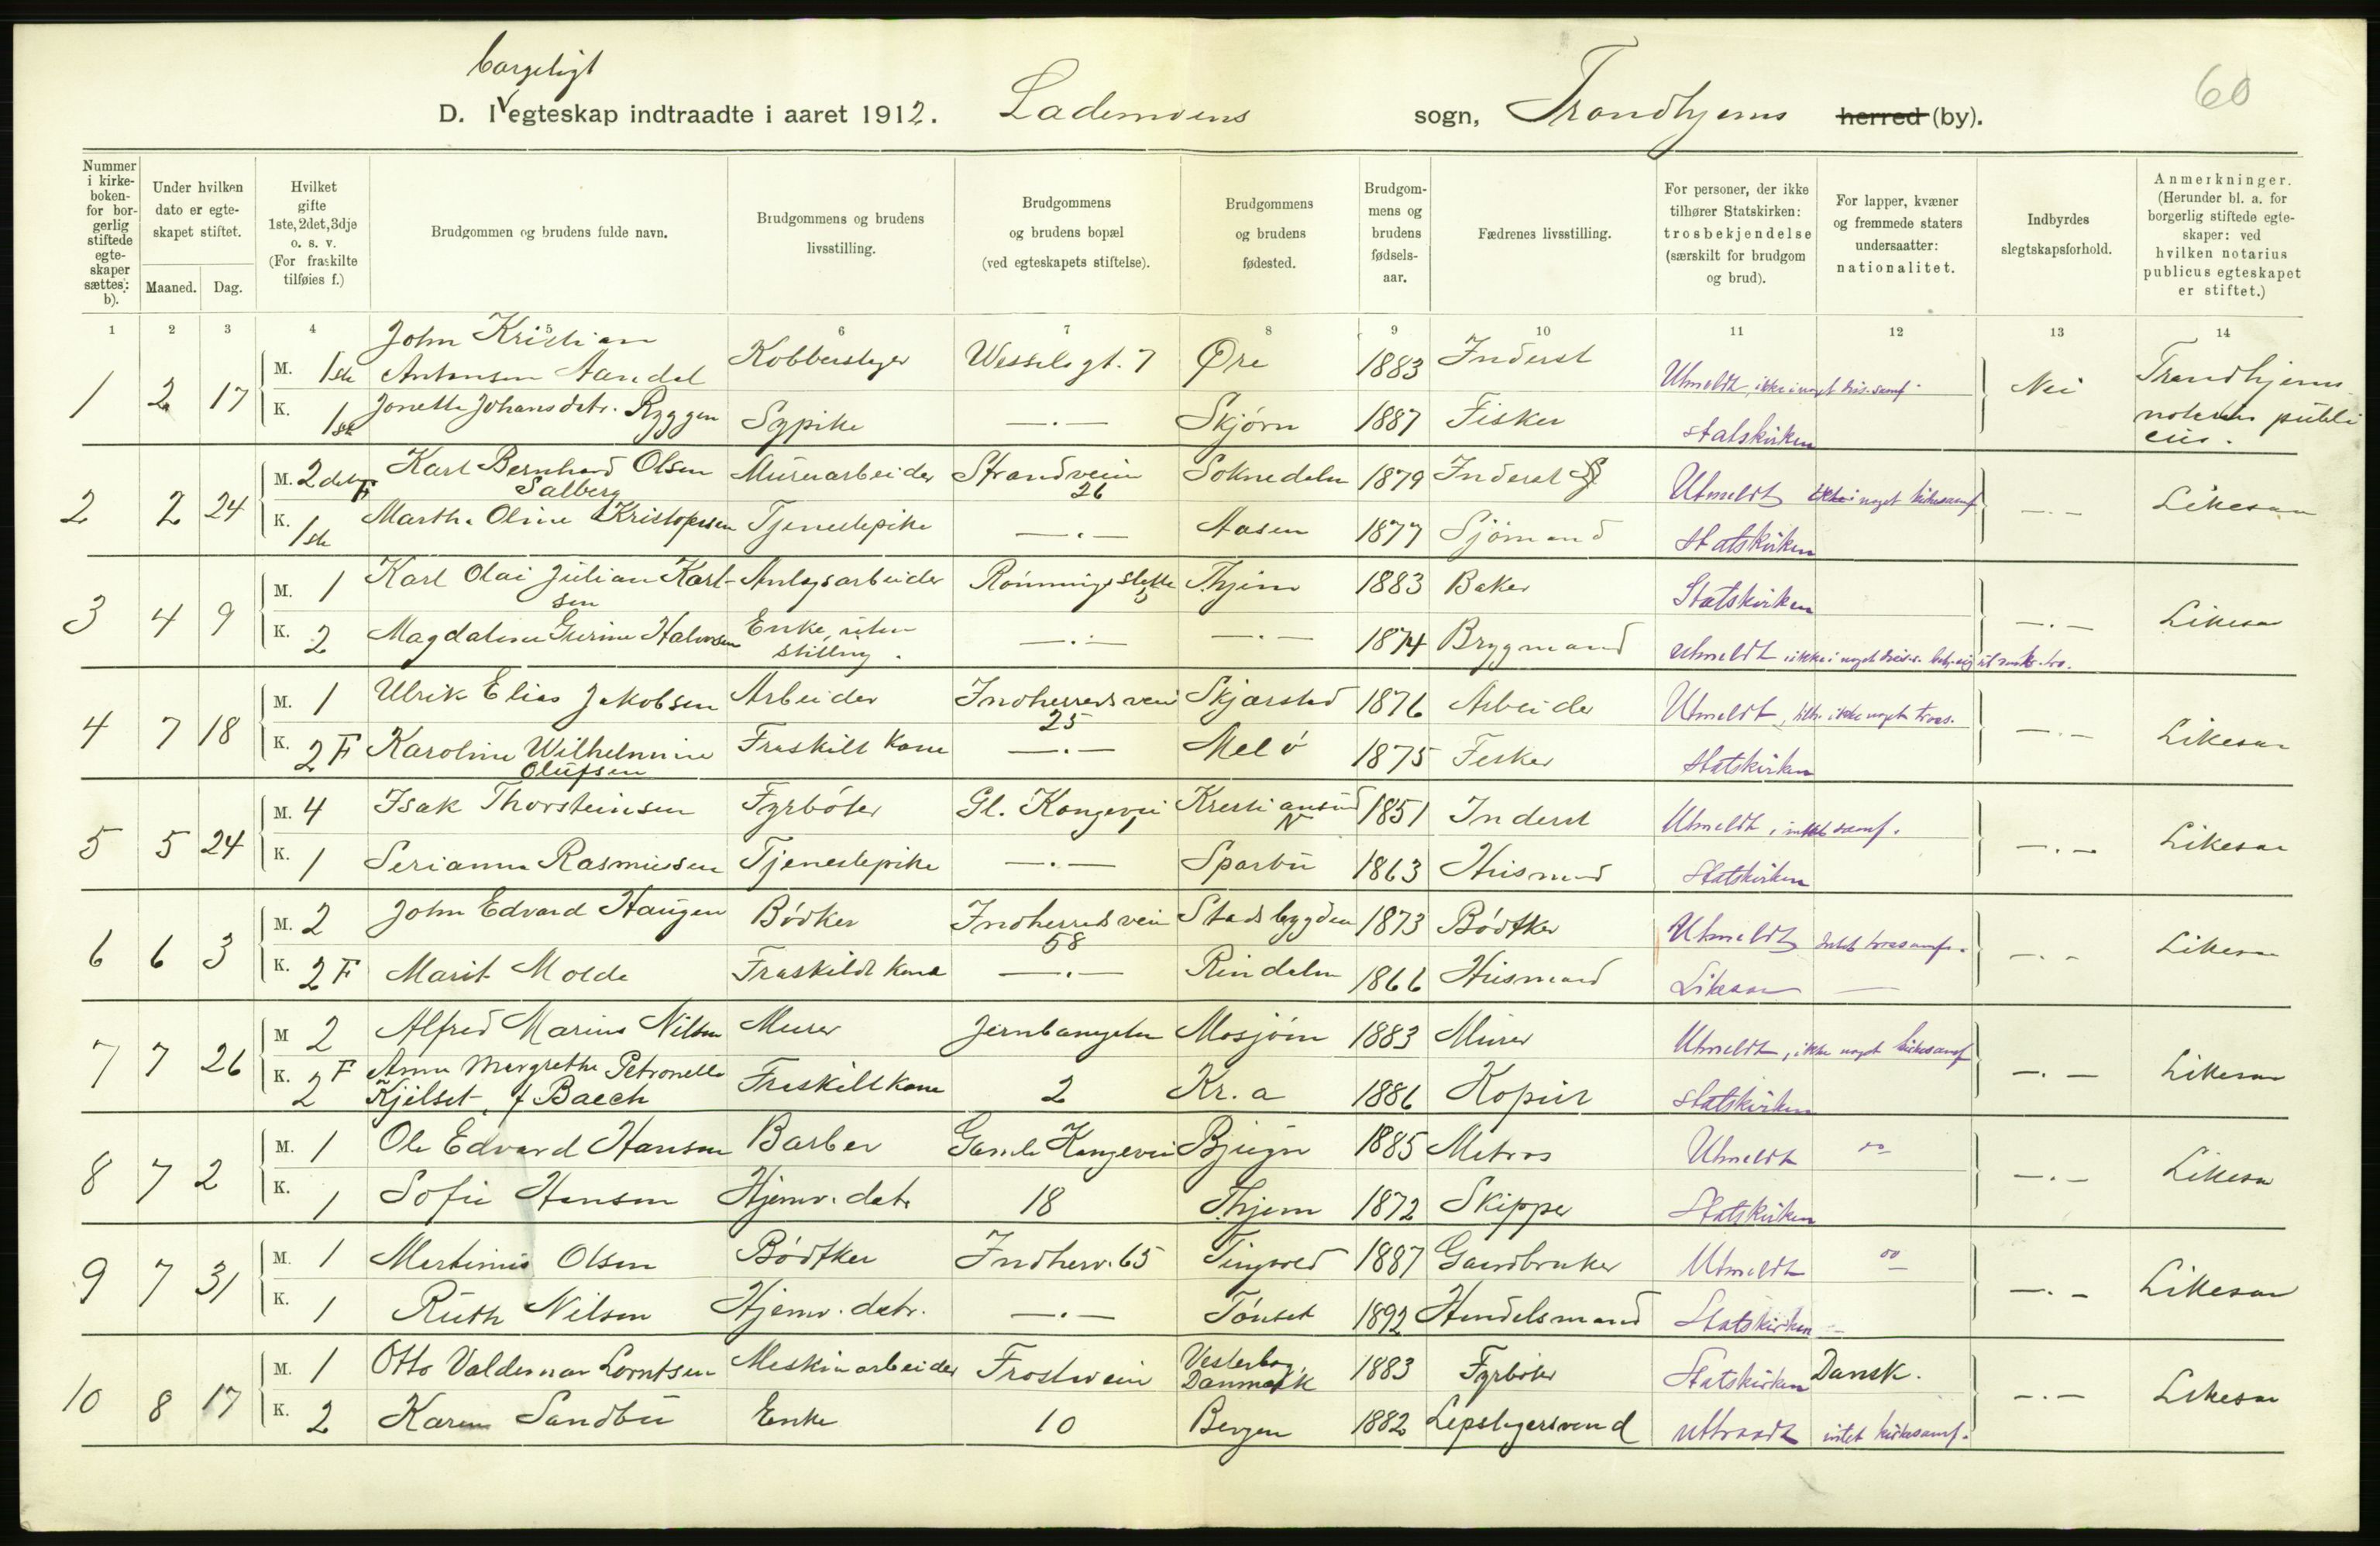 borgeligt
D. I egteskap indtraadte i aaret 1912. Lademoens sogn, Trondhjems herred (by).
60
Nummer i kirkeboken for borgerlig stiftede egteskaper sættes: b).
Under hvilken dato er egteskapet stiftet.
Maaned. Dag.
Hvilket gifte 1ste, 2det, 3dje o. s. v. (For fraskilte tilføies f.)
Brudgommen og brudens fulde navn.
Brudgommens og brudens livsstilling.
Brudgommens og brudens bopæl (ved egteskapets stiftelse).
Brudgommens og brudens fødested.
Brudgommens og brudens fødselsaar.
Fædrenes livsstilling.
For personer, der ikke tilhører Statskirken: trosbekjendelse (særskilt for brudgom og brud).
For lapper, kvæner og fremmede staters undersaatter: nationalitet.
Indbyrdes slegtskapsforhold.
Anmerkninger. (Herunder bl. a. for borgerlig stiftede egteskaper: ved hvilken notarius publicus egteskapet er stiftet.)
1 2 3 4 5 6 7 8 9 10 11 12 13 14
1 2 17 M. 1ste John Kristian Antonsen Aandal Kobberslager Wesselsgt. 7 Øre 1883 Inderst Utmeldt, ikke i noget tros.samf. Nei Trondhjems notarius publicus.
K. 1ste Jonetta Johansdatr. Ryggen Sypike —.— Skjørn 1887 Fisker Statskirken
2 2 24 M. 2det F Karl Bernhard Olsen Salberg Murerarbeider Strandveien 26 Soknedalen 1879 Inderst Utmeldt ikke i noget kirkesamf —.— Likesaa
K. 1ste Martha Oline Kristopersen Tjenestepike —.— Aasen 1877 Sjömand Statskirken
3 4 9 M. 1 Karl Olai Julian Karlsen Anlægsarbeider Rönningsletta Thjem 1883 Baker Statskirken —.— Likesaa
K. 2 Magdalena Gurine Halvorsen Enke, uten stilling. —.— —.— 1874 Brygmand Utmeldt, ikke i noget
4 7 18 M. 1 Ulrik Elias Jakobsen Arbeider Indherredsveien 25 Skjærstad 1876 Arbeider Utmeldt, tilh. ikke noget tros. —.— Likesaa
K. 2 F Karoline Wilhelmine Olufsen Fraskilt Kone —.— Melö 1875 Fisker Statskirken
5 5 24 M. 4 Isak Thorsteinsen Fyrböter Gl. Kongevei Kristiansund N 1851 Inderst Utmeldt, intet samf. —.— Likesaa
K. 1 Serianna Rasmussen Tjenestepike —.— Sparbu 1863 Husmand Statskirken
6 6 3 M. 2 John Edvard Haugen Bödker Indherredsveien 58 Stadsbygden 1873 Bödtker Utmeldt Intet trossamf. —.— Likesaa
K. 2 F Marit Molde Fraskildt Kone —.— Rindalen 1866 Husmand Likesaa —
7 7 26 M 2 Alfred Marius Nilsen Murer Jernbanegaten Mosjöen 1883 Murer Utmeldt, ikke noget kirkesamf —.— Likesaa
K. 2 F Anna Margrethe Petronella Kjelset, f Baech Fraskilt kone 2 Kr.a 1886 Kopist Statskirken
8 7 2 M. 1 Ole Edvard Hansen Barber Gamle Kongevei Bjugn 1885 Matros Utmeldt —.— Likesaa
K. 1 Sofie Hansen Hjemv. datr 18 Thjem 1872 Skipper Statskirken
9 7 31 M. 1 Martinus Olsen Bödtker Indherv. 65 Tingvold 1887 Gaardbruker Utmeldt —.— Likesaa
K. 1 Ruth Nilsen Hjemv. datr. —.— Tönset 1892 Handelsmand Statskirken
10 8 17 M. 1 Otto Valdemar Lorntsen Maskinarbeider Frostveien Danmark 1883 Fyrböter Statskirken Dansk. —.— Likesaa
K. 2 Karen Sandbu Enke 10 Bergen 1882 Utraadt intet kirkesamf.